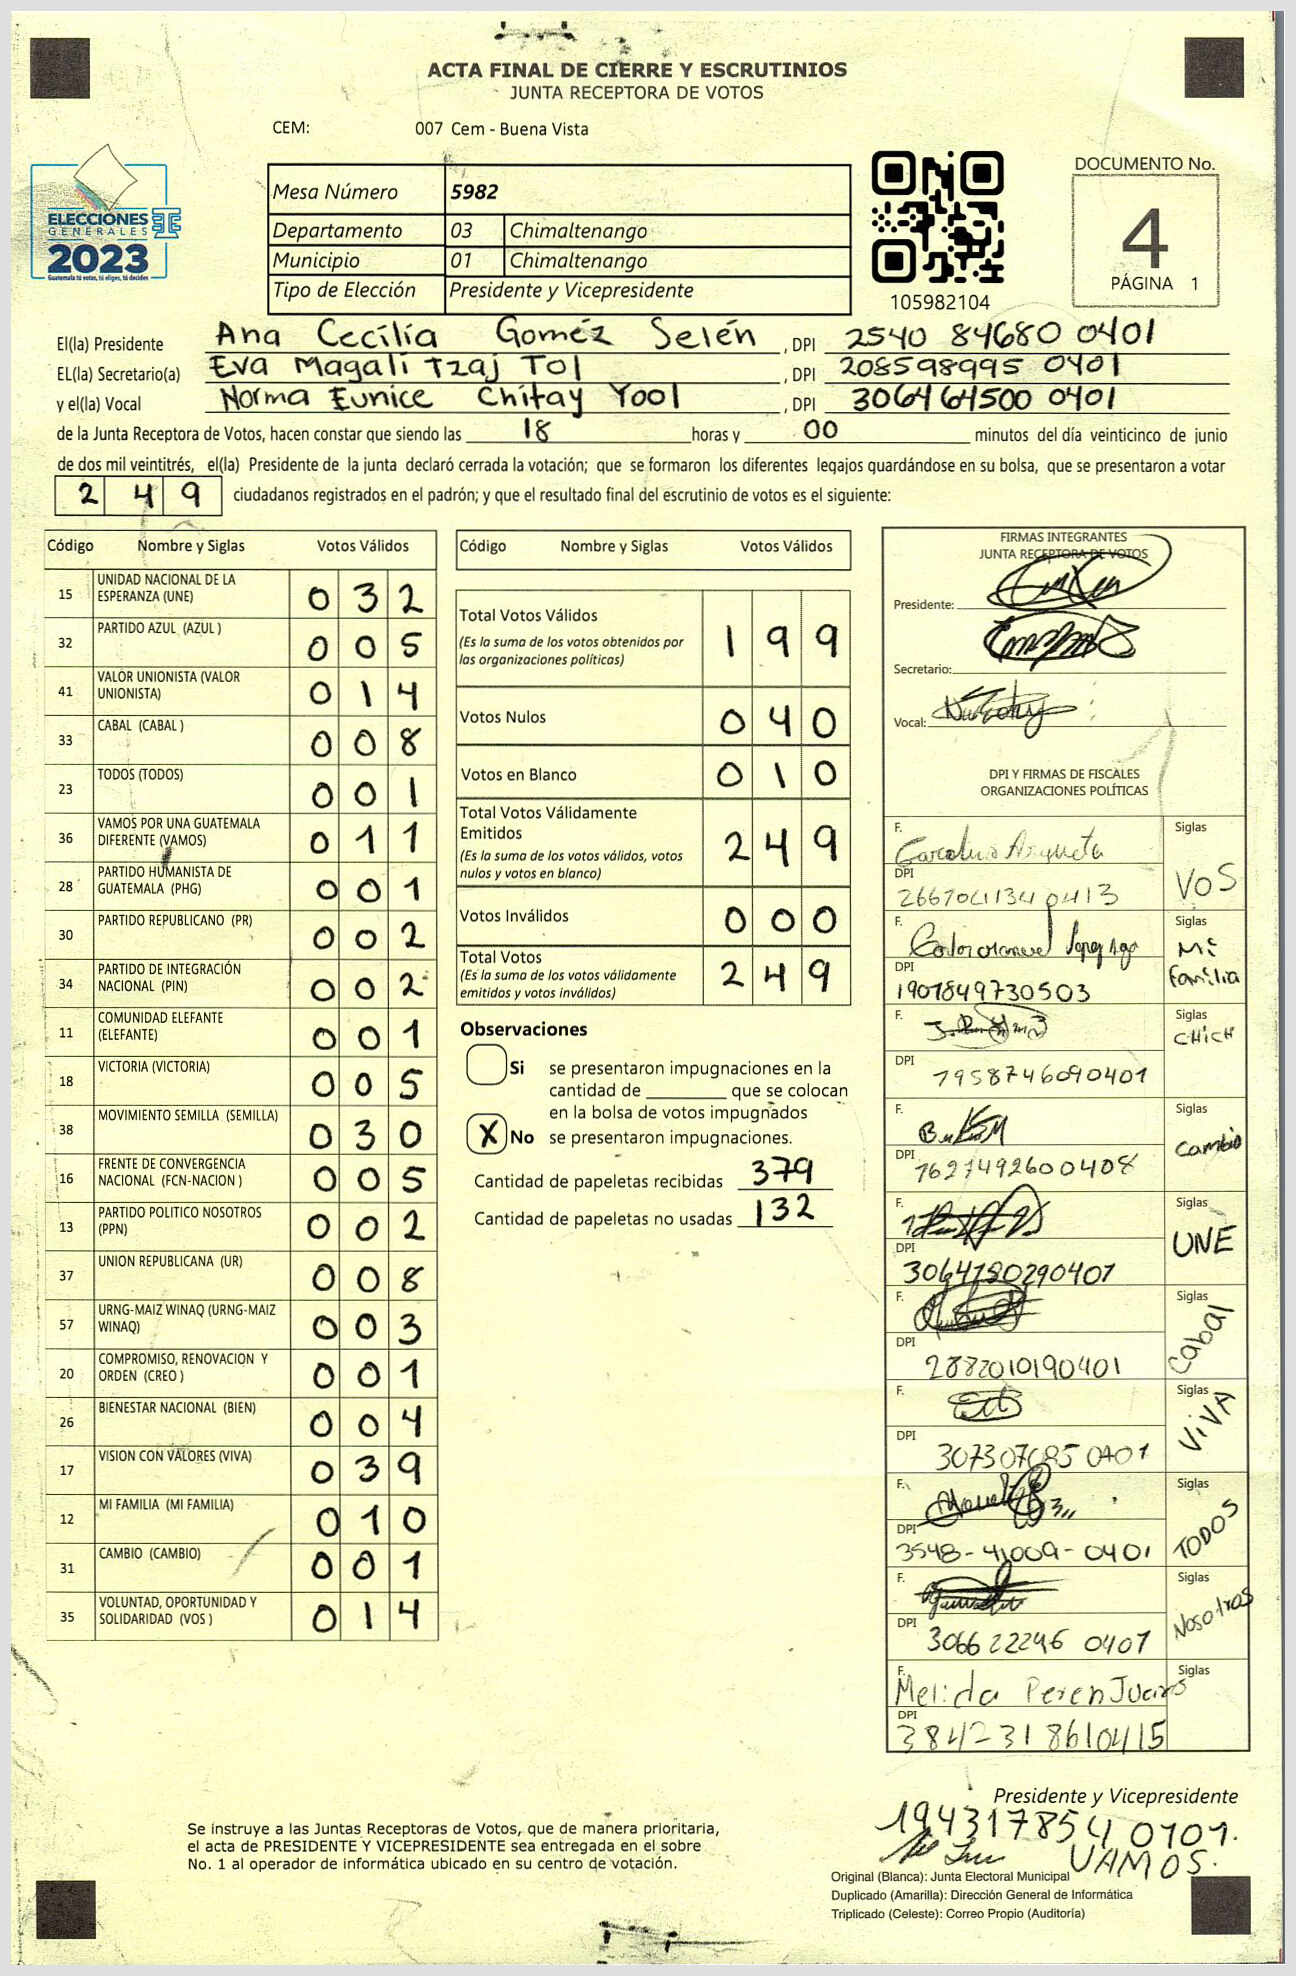 ACTA FINAL DE CIERRE Y ESCRUTINIOS
JUNTA RECEPTORA DE VOTOS
CEM: 007 Cem - Buena Vista
ELECCIONES
GENERALES
2023
Guatemala tú votas, tú eliges, tú decides
Mesa Número 5982
Departamento 03 Chimaltenango
Municipio 01 Chimaltenango
Tipo de Elección Presidente y Vicepresidente
105982104
DOCUMENTO No.
4
PÁGINA 1
El(la) Presidente Ana Cecilia Goméz Selén, DPI 2540 84680 0401
EL(la) Secretario(a) Eva Magali Tzaj Tol, DPI 208598995 0401
y el(la) Vocal Norma Eunice Chitay Yool, DPI 306464500 0401
de la Junta Receptora de Votos, hacen constar que siendo las 18 horas y 00 minutos del día veinticinco de junio
de dos mil veintitrés, el(la) Presidente de la junta declaró cerrada la votación; que se formaron los diferentes legajos guardándose en su bolsa, que se presentaron a votar
2 4 9 ciudadanos registrados en el padrón; y que el resultado final del escrutinio de votos es el siguiente:
Código Nombre y Siglas Votos Válidos
15 UNIDAD NACIONAL DE LA ESPERANZA (UNE) 0 3 2
32 PARTIDO AZUL (AZUL ) 0 0 5
41 VALOR UNIONISTA (VALOR UNIONISTA) 0 1 4
33 CABAL (CABAL ) 0 0 8
23 TODOS (TODOS) 0 0 1
36 VAMOS POR UNA GUATEMALA DIFERENTE (VAMOS) 0 1 1
28 PARTIDO HUMANISTA DE GUATEMALA (PHG) 0 0 1
30 PARTIDO REPUBLICANO (PR) 0 0 2
34 PARTIDO DE INTEGRACIÓN NACIONAL (PIN) 0 0 2
11 COMUNIDAD ELEFANTE (ELEFANTE) 0 0 1
18 VICTORIA (VICTORIA) 0 0 5
38 MOVIMIENTO SEMILLA (SEMILLA) 0 3 0
16 FRENTE DE CONVERGENCIA NACIONAL (FCN-NACION ) 0 0 5
13 PARTIDO POLITICO NOSOTROS (PPN) 0 0 2
37 UNION REPUBLICANA (UR) 0 0 8
57 URNG-MAIZ WINAQ (URNG-MAIZ WINAQ) 0 0 3
20 COMPROMISO, RENOVACION Y ORDEN (CREO ) 0 0 1
26 BIENESTAR NACIONAL (BIEN) 0 0 4
17 VISION CON VALORES (VIVA) 0 3 9
12 MI FAMILIA (MI FAMILIA) 0 1 0
31 CAMBIO (CAMBIO) 0 0 1
35 VOLUNTAD, OPORTUNIDAD Y SOLIDARIDAD (VOS ) 0 1 4
Código Nombre y Siglas Votos Válidos
Total Votos Válidos 1 9 9
(Es la suma de los votos obtenidos por
las organizaciones políticas)
Votos Nulos 0 4 0
Votos en Blanco 0 1 0
Total Votos Válidamente
Emitidos 2 4 9
(Es la suma de los votos válidos, votos
nulos y votos en blanco)
Votos Inválidos 0 0 0
Total Votos 2 4 9
(Es la suma de los votos válidamente
emitidos y votos inválidos)
Observaciones
Si se presentaron impugnaciones en la
cantidad de ________ que se colocan
en la bolsa de votos impugnados
X No se presentaron impugnaciones.
Cantidad de papeletas recibidas 379
Cantidad de papeletas no usadas 132
FIRMAS INTEGRANTES
JUNTA RECEPTORA DE VOTOS
Presidente:
Secretario:
Vocal:
DPI Y FIRMAS DE FISCALES
ORGANIZACIONES POLÍTICAS
F. Siglas
DPI VOS
F. Siglas
DPI 1901849730503 Mi Familia
F. Siglas
DPI 1958746090401 CHICH
F. Siglas
DPI 1627492600408 Cambio
F.
DPI 3064780290401 Siglas UNE
F. Siglas
DPI 2882010190401 Cabal
F. Siglas
DPI VIVA
F. Siglas
DPI 3548-41009-0401 TODOS
F. Siglas
DPI 306622246 0401 Nosotros
F. Melida Peren Siglas
DPI 3842318610415
Presidente y Vicepresidente
VAMOS.
Se instruye a las Juntas Receptoras de Votos, que de manera prioritaria,
el acta de PRESIDENTE Y VICEPRESIDENTE sea entregada en el sobre
No. 1 al operador de informática ubicado en su centro de votación.
Original (Blanca): Junta Electoral Municipal
Duplicado (Amarilla): Dirección General de Informática
Triplicado (Celeste): Correo Propio (Auditoría)